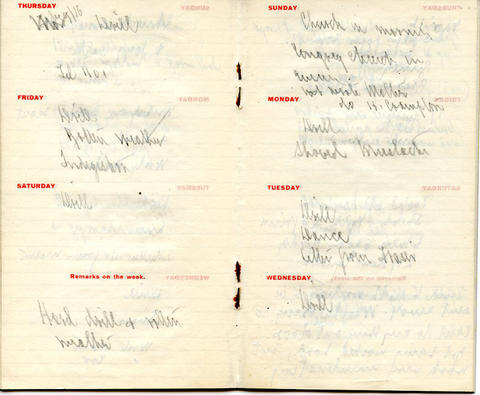 THURSDAY
Drill
FRIDAY
Drill
Rotten weather
Indigestion
SATURDAY
Drill
Remarks on the week.
Hard drill & rotten
weather
SUNDAY
Church in morning
Congreg church in
evening
wrote Mother
do H. Crompton
MONDAY
Drill
Shaved Mustache
TUESDAY
Drill
Dance
Letter from
WEDNESDAY
Drill